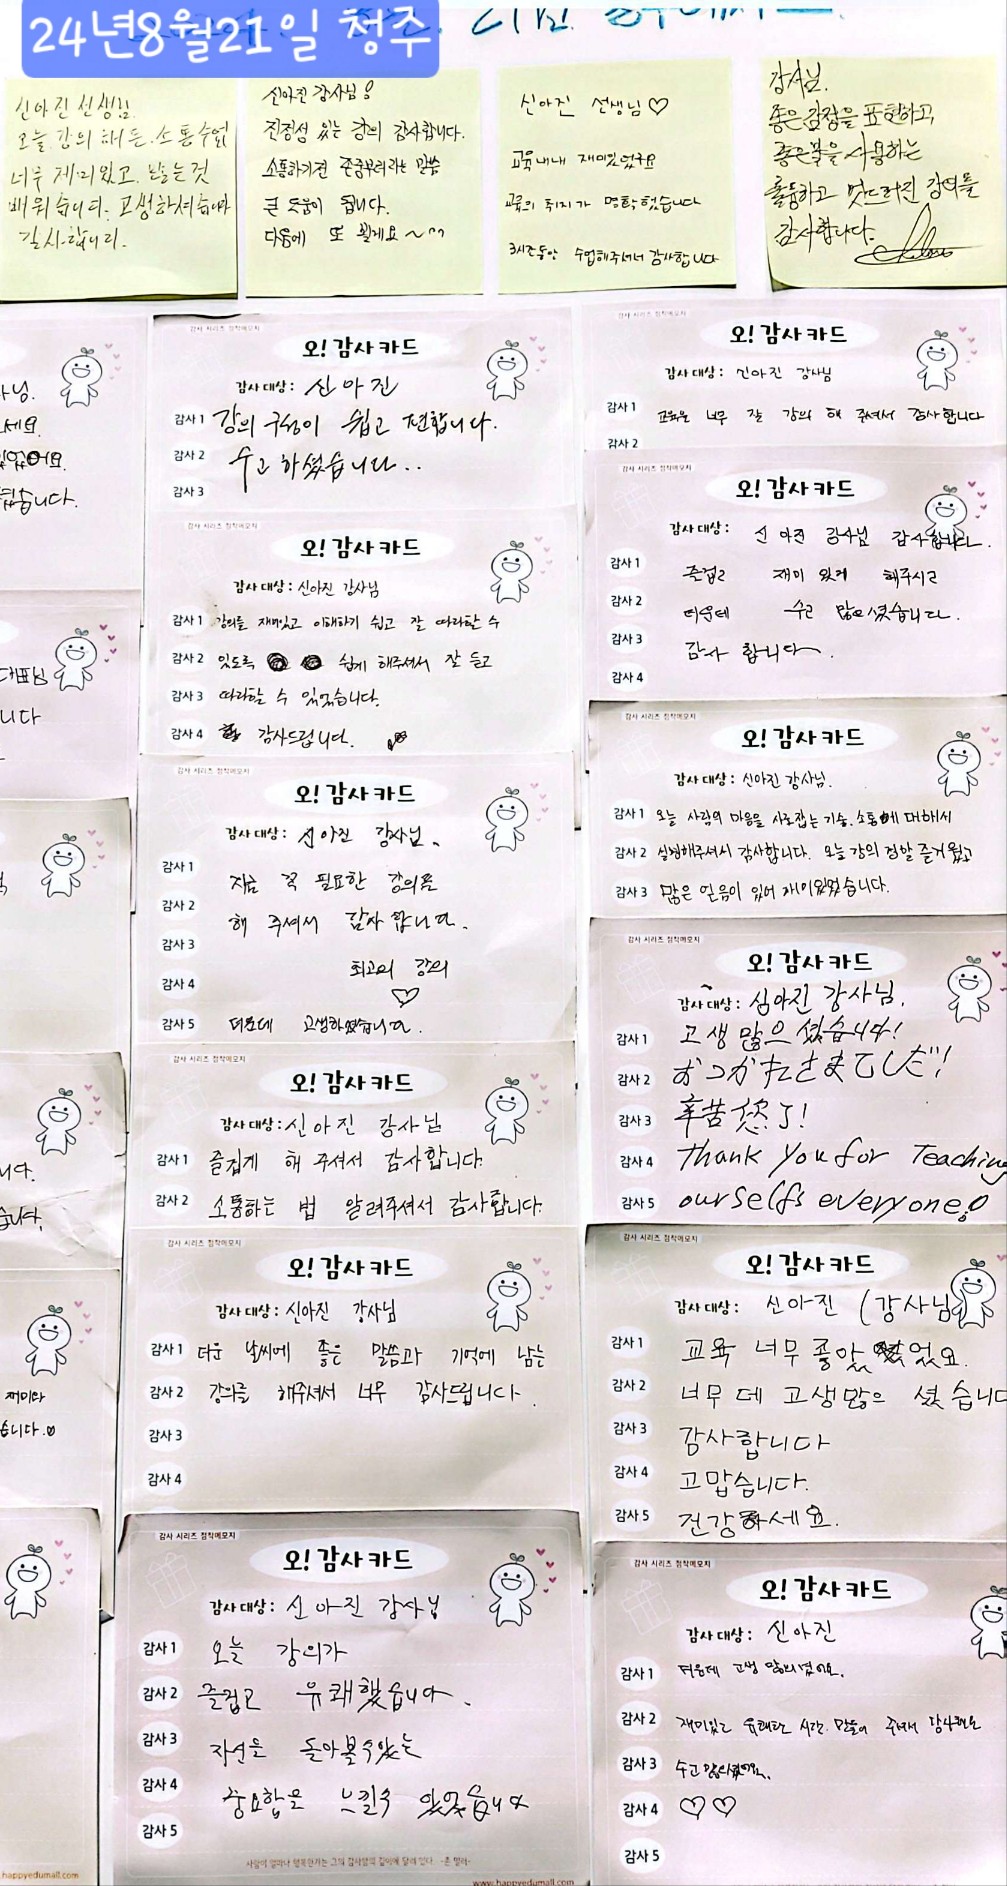 24년8월21일 청주
신아진 선생님.
오늘 강의 해 준 소통수업
너무 재미있고 많은 것
배워습니다. 고생하셔습니다
감사합니다.
신아진 강사님!
진정성 있는 강의 감사합니다.
소통하기전 존중부터라는 말씀
큰 도움이 됩니다.
다음에 또 뵐게요~^^
신아진 선생님♡
교육내내 재미있었구요
교육의 취지가 명확했습니다
3시간동안 수업해주셔서 감사합니다
강사님.
좋은 감정을 표현하고,
좋은 말을 사용하는
훌륭하고 멋드러진 강의를
감사합니다.
감사 시리즈 점착메모지
오! 감사카드
감사대상: 신아진
감사1 강의 구성이 쉽고 편합니다.
감사2 수고 하셨습니다..
감사3
감사 시리즈 점착메모지
오! 감사카드
감사대상: 신아진 강사님
감사1 강의를 재미있고 이해하기 쉽고 잘 따라할 수
감사2 있도록 쉽게 해주셔서 잘 듣고
감사3 따라할 수 있었습니다.
감사4 감사드립니다.
감사 시리즈 점착메모지
오! 감사카드
감사대상: 신아진 강사님.
감사1 지금 꼭 필요한 강의를
감사2 해 주셔서 감사 합니다.
감사3
최고의 강의
감사4 ♡
감사5 더운데 고생하셨습니다.
감사 시리즈 점착메모지
오! 감사카드
감사대상: 신아진 강사님
감사1 즐겁게 해 주셔서 감사합니다.
감사2 소통하는 법 알려주셔서 감사합니다.
감사 시리즈 점착메모지
오! 감사카드
감사대상: 신아진 강사님
감사1 더운 날씨에 좋은 말씀과 기억에 남는
감사2 강의를 해주셔서 너무 감사드립니다.
감사3
감사4
감사 시리즈 점착메모지
오! 감사카드
감사대상: 신아진 강사님
감사1 오늘 강의가
감사2 즐겁고 유쾌했습니다.
감사3 자신을 돌아볼수있는
감사4 중요함을 느낄수 있었습니다
감사5
www.happyedumall.com
감사 시리즈 점착메모지
오! 감사카드
감사대상: 신아진 강사님
감사1 교육을 너무 잘 강의 해 주셔서 감사합니다
감사2
감사 시리즈 점착메모지
오! 감사카드
감사대상: 신아진 강사님 감사합니다.
감사1 즐겁고 재미 있게 해주시고
감사2 더운데 수고 많으셨습니다.
감사3 감사 합니다.
감사4
감사 시리즈 점착메모지
오! 감사카드
감사대상: 신아진 강사님.
감사1 오늘 사람의 마음을 사로잡는 기술, 소통에 대해서
감사2 설명해주셔서 감사합니다. 오늘 강의 정말 즐거웠고
감사3 많은 얻음이 있어 재미있었습니다.
감사 시리즈 점착메모지
오! 감사카드
감사대상: 심아진 강사님.
감사1 고생 많으셨습니다!
감사2 おつかたさまでした!
감사3 辛苦您了!
감사4 Thank you for Teaching
감사5 ourselfs everyone!
감사 시리즈 점착메모지
오! 감사카드
감사대상: 신아진 (강사님)
감사1 교육 너무 좋았었어요.
감사2 너무 데 고생많으 셨습니다
감사3 감사합니다
감사4 고맙습니다.
감사5 건강하세요.
감사 시리즈 점착메모지
오! 감사카드
감사대상: 신아진
감사1 더운데 고생 많으셨어요.
감사2 재미있고 유쾌한 시간 만들어 주셔서 감사해요
감사3 수고 많으셨어요.
감사4 ♡♡
감사5
happyedumall.com